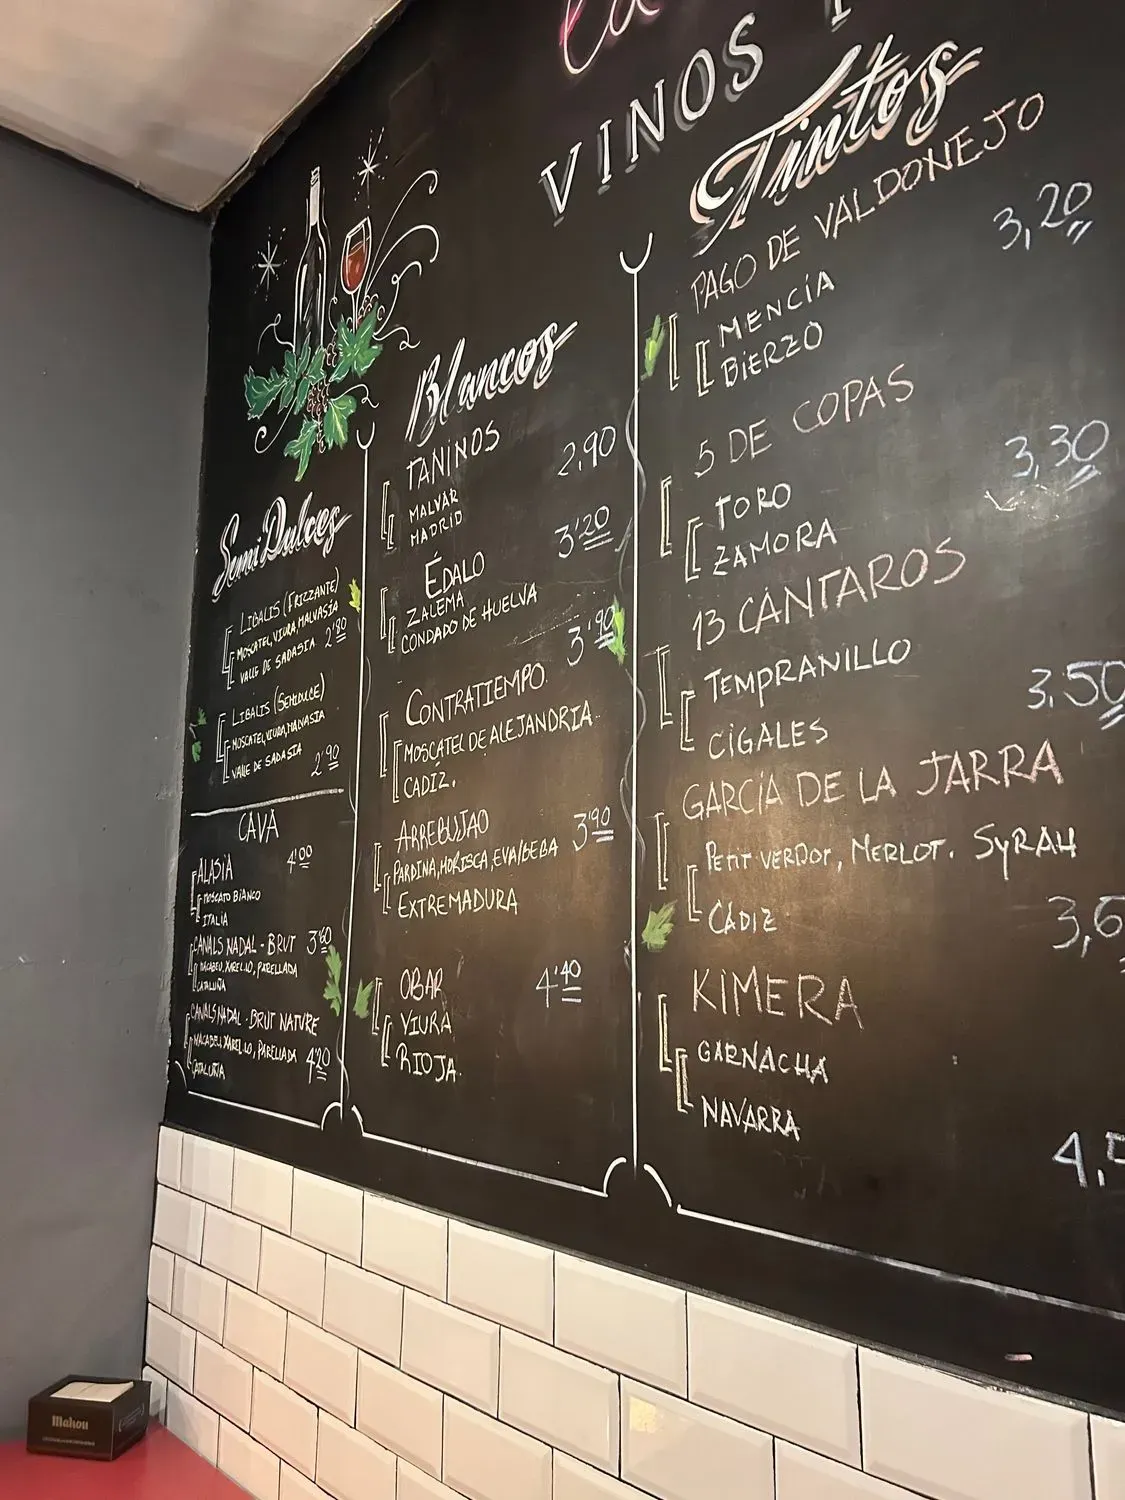 VINOS
Semi Dulces
LIBALIS (FRIZZANTE)
MOSCATEL, VIURA, MALVASIA
VALLE DE SADASIA 2'80
LIBALIS (SEMIDULCE)
MOSCATEL, VIURA, MALVASIA
VALLE DE SADASIA
2'90
CAVA
ALASIA 4'00
MOSCATO BIANCO
ITALIA
CANALS NADAL - BRUT 3'60
MACABEU, XAREL·LO, PARELLADA
CATALUÑA
CANALS NADAL - BRUT NATURE
MACABEU, XAREL·LO, PARELLADA 4'20
CATALUÑA
Blancos
TANINOS 2,90
MALVAR
MADRID
3'20
ÉDALO
ZALEMA
CONDADO DE HUELVA
3'90
CONTRATIEMPO
MOSCATEL DE ALEJANDRIA
CADÍZ.
ARREBUJAO 3'90
PARDINA, MORISCA, EVA/BEBA
EXTREMADURA
OBAR 4'40
VIURA
RIOJA.
Tintos
PAGO DE VALDONEJO
3,20
MENCÍA
BIERZO
5 DE COPAS
3,30
TORO
ZAMORA
13 CÁNTAROS
TEMPRANILLO
3.50
CIGALES
GARCÍA DE LA JARRA
PETIT VERDOT, MERLOT. SYRAH
CÁDIZ
3,6
KIMERA
GARNACHA
NAVARRA
4,5
Mahou